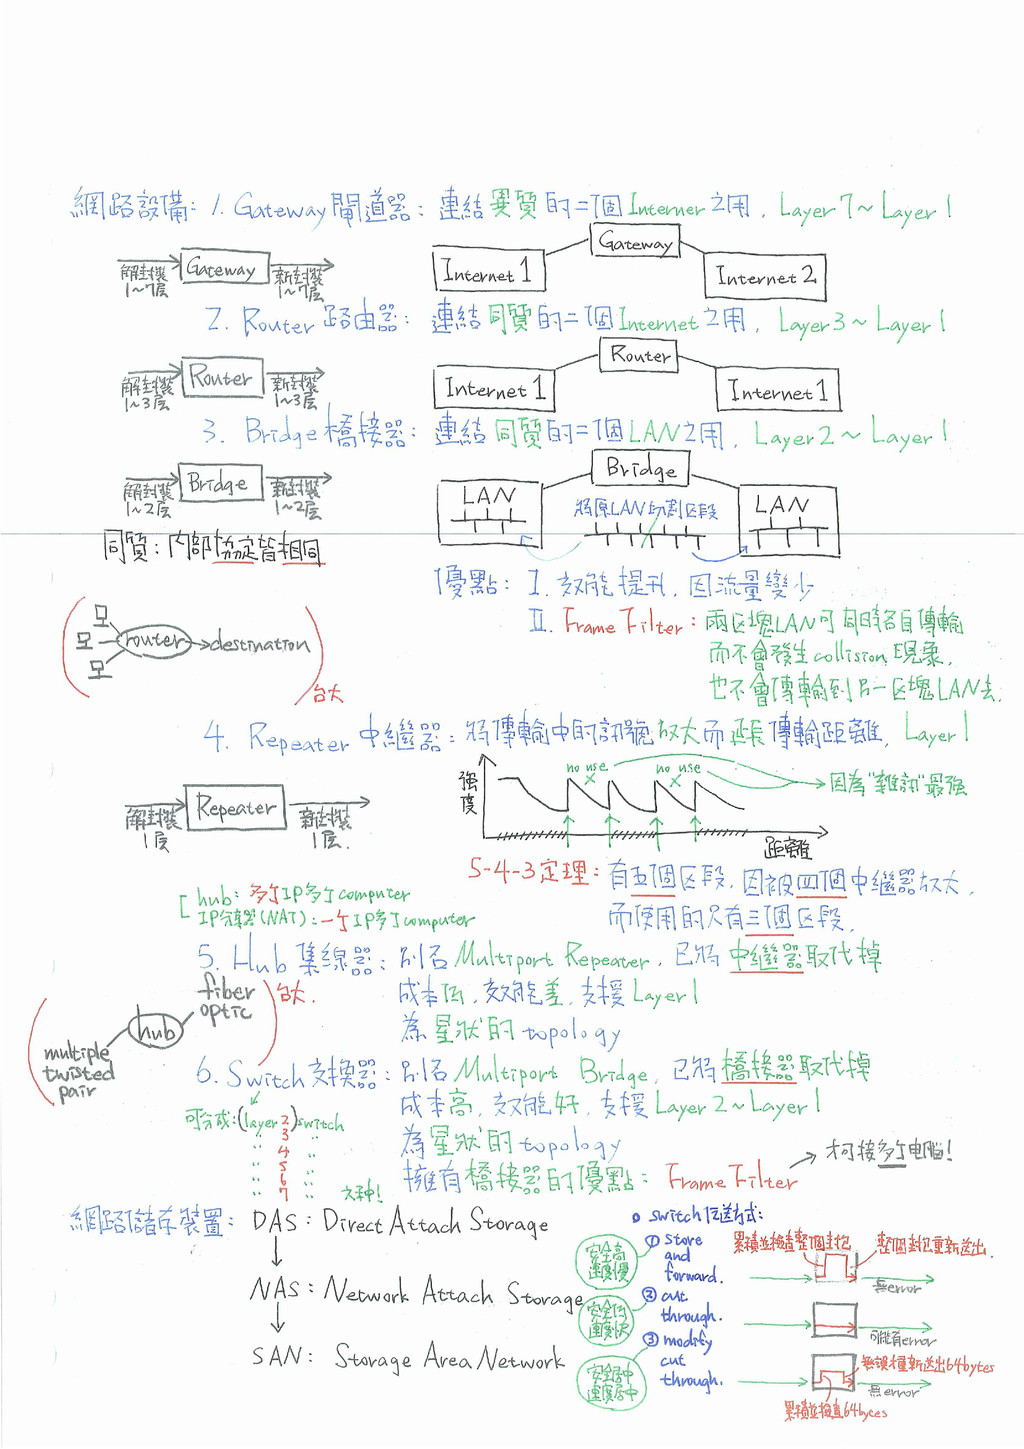 網路設備：1. Gateway 閘道器：連結異質的二個Interner之用，Layer 7～Layer 1
解封裝 1～7层
Gateway
新封裝 1～7层
Internet 1
Gateway
Internet 2
2. Router 路由器：連結同質的二個Internet之用，Layer 3～Layer 1
解封裝 1～3层
Router
新封裝 1～3层
Internet 1
Router
Internet 1
3. Bridge 橋接器：連結同質的二個LAN之用，Layer 2～Layer 1
解封裝 1～2层
Bridge
新封裝 1～2层
LAN
Bridge
將原LAN切割区段
LAN
同質：內部協定皆相同
優點：I. 效能提升，因流量變少
II. Frame Filter：兩区塊LAN可同時各自傳輸
而不會發生collision現象，
也不會傳輸到另一区塊LAN去.
router
destination
台大
4. Repeater 中繼器：將傳輸中的訊號放大而延長傳輸距離，Layer 1
解封裝 1层
Repeater
新封裝 1层.
強度
no use
no use
因為"雜訊"最強
距離
5-4-3定理：有五個区段，因被四個中繼器放大，
而使用的只有三個区段，
hub：多个IP多个computer
IP分享器(NAT)：一个IP多个computer
5. Hub 集線器：別名 Multiport Repeater，已將中繼器取代掉
成本低，效能差，支援Layer 1
為星狀的 topology
fiber optic
台大.
hub
multiple twisted pair
6. Switch 交換器：別名 Multiport Bridge，已將橋接器取代掉
成本高，效能好，支援Layer 2～Layer 1
為星狀的 topology
擁有橋接器的優點：Frame Filter
才可接多个电脑！
可分成：(layer 2) switch
〃 3 〃
〃 4 〃
〃 5
〃 6 〃
〃 7 〃 六种！
網路儲存裝置：DAS：Direct Attach Storage
NAS：Network Attach Storage
SAN：Storage Area Network
switch傳送方式：
安全高 速度慢
① store and forward.
累積並檢查整個封包
整個封包重新送出.
無error
安全低 速度快
② cut through.
可能有error
安全居中 速度居中
③ modify cut through.
無誤才重新送出64bytes
無error
累積並檢查64bytes